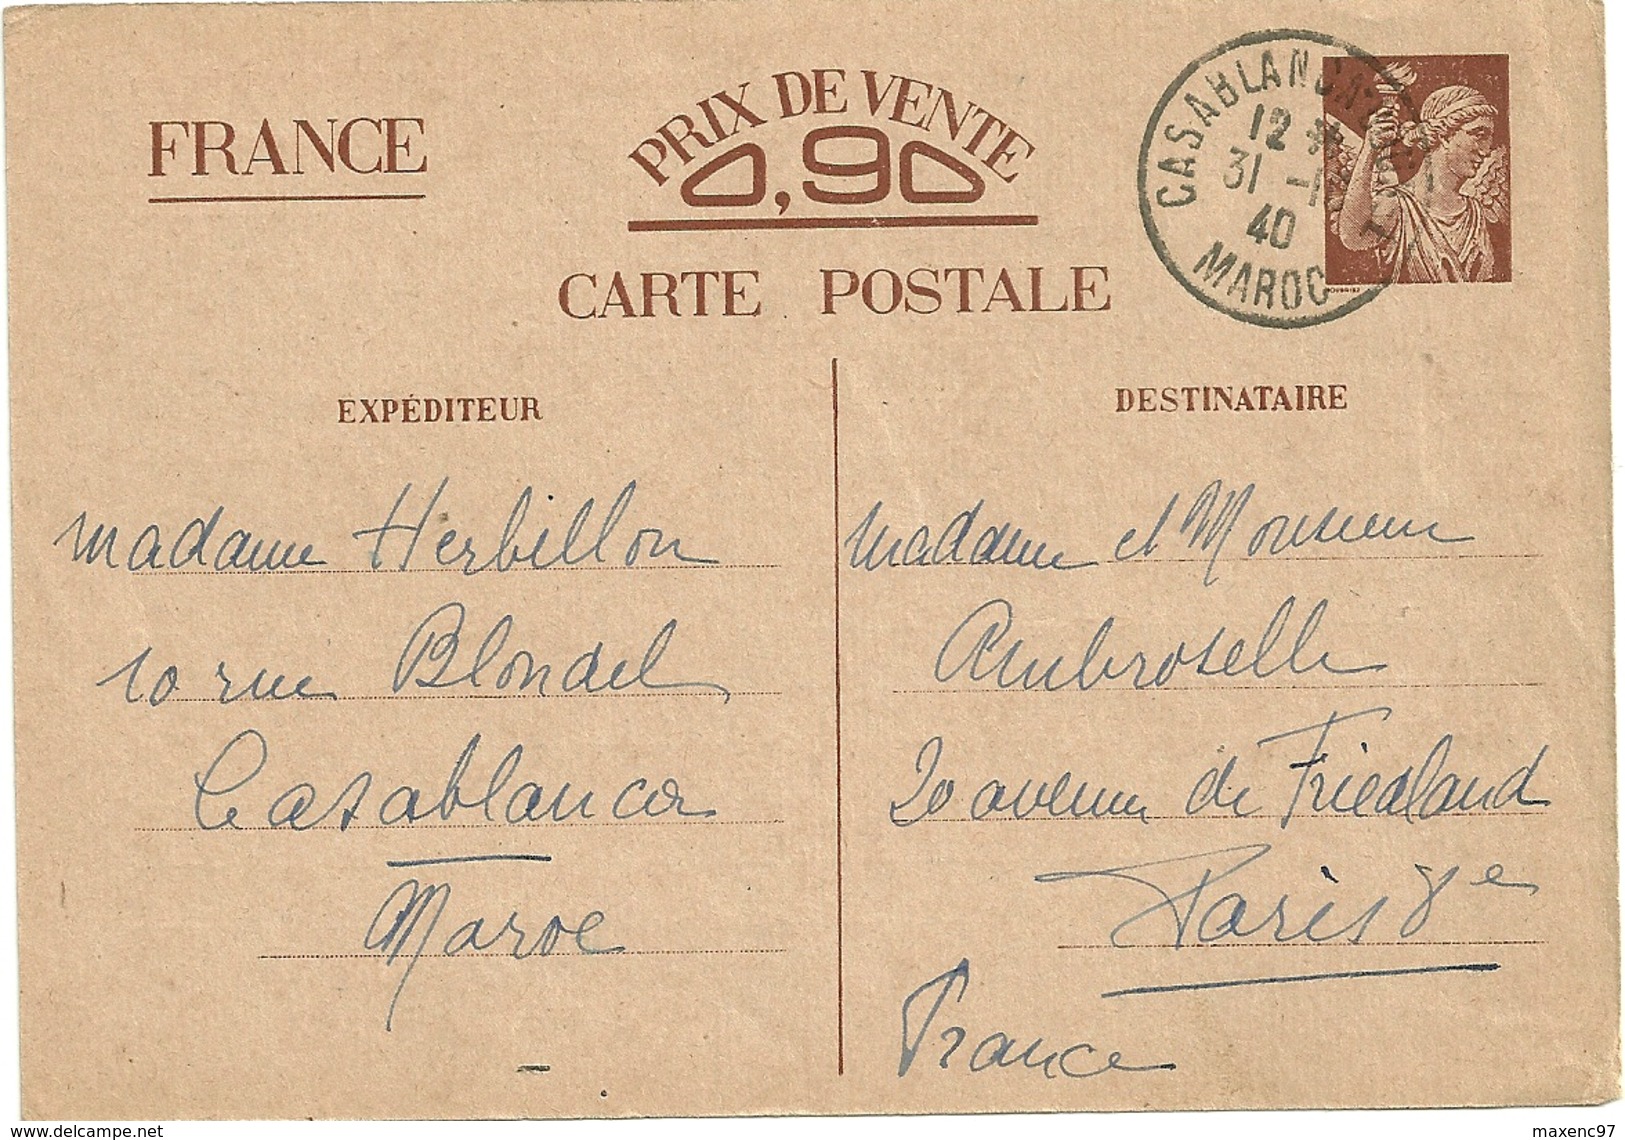 FRANCE
PRIX DE VENTE
0,90
CARTE POSTALE
CASABLANCA
12
31
40
MAROC
EXPÉDITEUR
Madame Herbillon
10 rue Blondel
Casablanca
Maroc
DESTINATAIRE
Madame et Monsieur
Ambroselli
20 avenue de Friedland
Paris 8e
France
www.delcampe.net
maxenc97